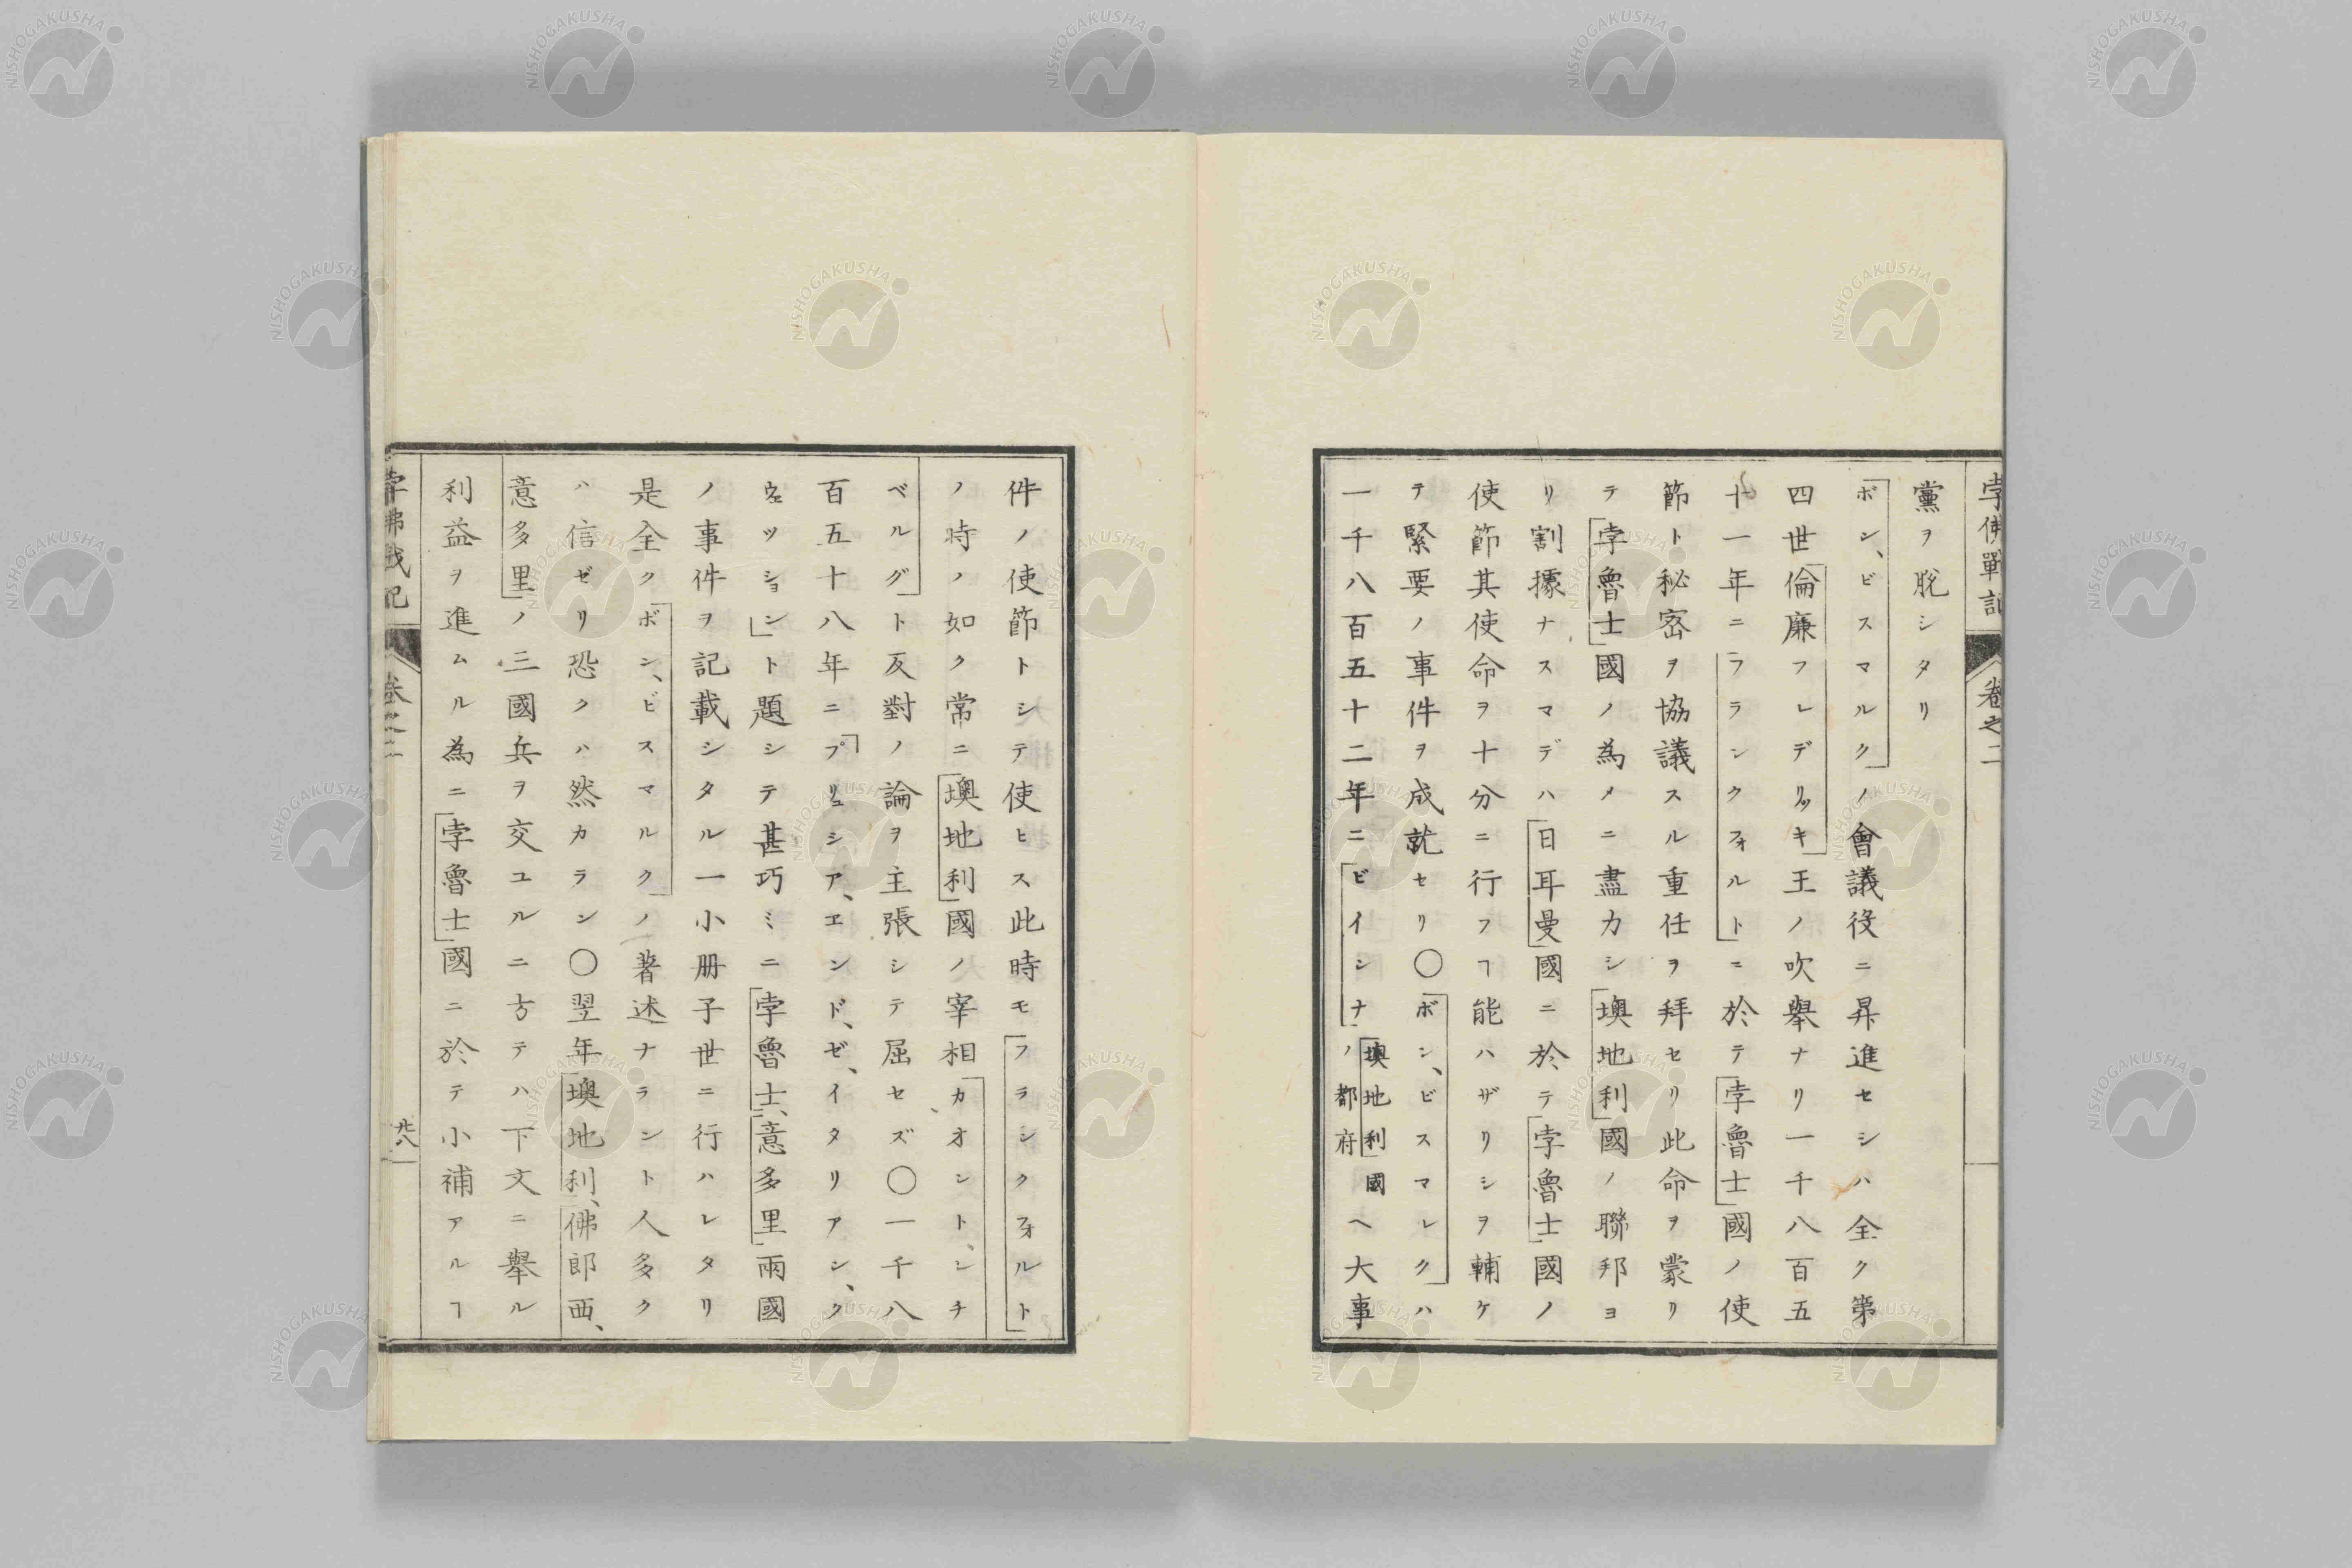 孛佛戰記 卷之二
黨ヲ脱シタリ
ボン、ビスマルクノ會議役ニ昇進セシハ全ク第
四世倫廉フレデリッキ王ノ吹舉ナリ一千八百五
十一年ニフランクフォルトニ於テ孛魯士國ノ使
節ト秘密ヲ協議スル重任ヲ拜セリ此命ヲ蒙リ
テ孛魯士國ノ為メニ盡力シ墺地利國ノ聯邦ヨ
リ割據ナスマデハ日耳曼國ニ於テ孛魯士國ノ
使節其使命ヲ十分ニ行フヿ能ハザリシヲ輔ケ
テ緊要ノ事件ヲ成就セリ〇ボン、ビスマルクハ
一千八百五十二年ニビインナノ墺地利國都府ヘ大事
件ノ使節トシテ使ヒス此時モフランクフォルト
ノ時ノ如ク常ニ墺地利國ノ宰相カオント、ンチ
ベルグト反對ノ論ヲ主張シテ屈セズ〇一千八
百五十八年ニプリュシア、エンド、ゼ、イタリアン、ク
ウェッションント題シテ甚巧ミニ孛魯士、意多里兩國
ノ事件ヲ記載シタル一小册子世ニ行ハレタリ
是全クボン、ビスマルクノ著述ナラント人多ク
ハ信ゼリ恐クハ然カラン〇翌年墺地利、佛郎西、
意多里ノ三國兵ヲ交ユルニ方テハ下文ニ舉ル
利益ヲ進ムル為ニ孛魯士國ニ於テ小補アルヿ
孛佛戰記 卷之二 廿八
NISHOGAKUSHA